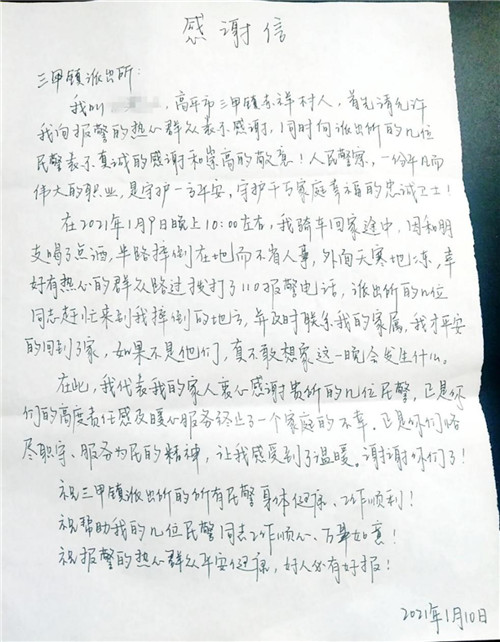 感谢信
三甲镇派出所:
我叫 ,高平市三甲镇赤祥村人,首先请允许
我向报警的热心群众表示感谢,同时向派出所的几位
民警表示真诚的感谢和崇高的敬意!人民警察,一份平凡而
伟大的职业,是守护一方平安,守护千万家庭幸福的忠诚卫士!
在2021年1月9日晚上10:00左右,我骑车回家途中,因和朋
友喝了点酒,半路摔倒在地而不省人事,外面天寒地冻,幸
好有热心的群众路过拨打了110报警电话,派出所的几位
同志赶忙来到我摔倒的地方,并及时联系我的家属,我才平安
的回到了家,如果不是他们,真不敢想象这一晚会发生什么。
在此,我代表我的家人衷心感谢贵所的几位民警,正是你
们的高度责任感及暖心服务终止了一个家庭的不幸。正是你们恪
尽职守、服务为民的精神,让我感受到了温暖。谢谢你们了!
祝三甲镇派出所的所有民警身体健康、工作顺利!
祝帮助我的几位民警同志工作顺心、万事如意!
祝报警的热心群众平安健康,好人必有好报!
2021年1月10日